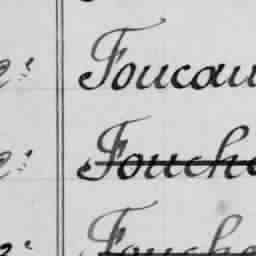 Foucau
Fouche
Fouche